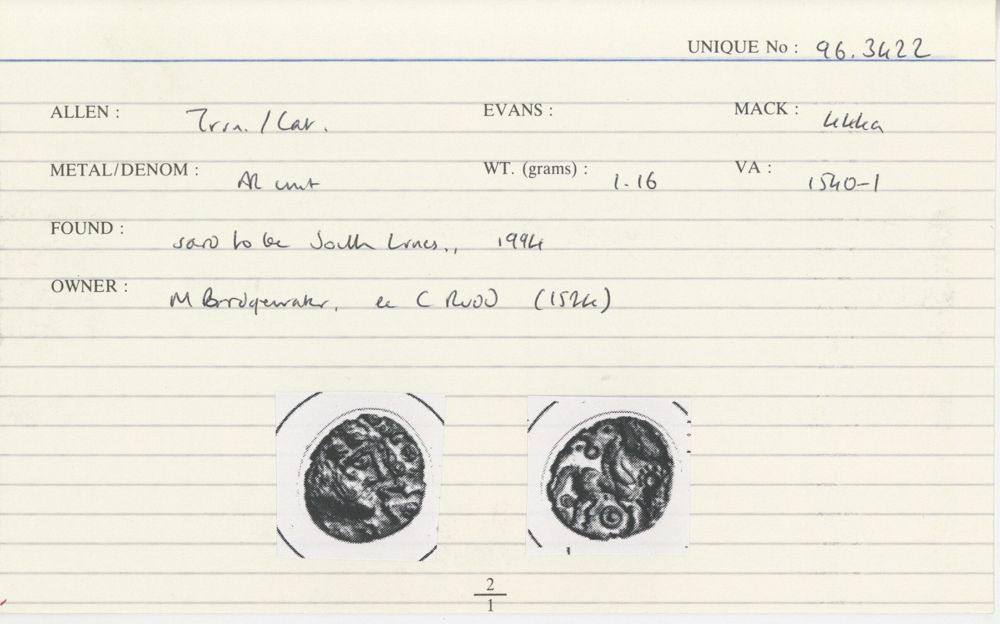 UNIQUE No : 96.3422
ALLEN : Trin. / Cat. EVANS : MACK : 444a
METAL/DENOM : AR unit WT. (grams) : 1.16 VA : 1540-1
FOUND : said to be South Lincs., 1994
OWNER : M Bridgewater, ex C Rudd (1524)
2
1